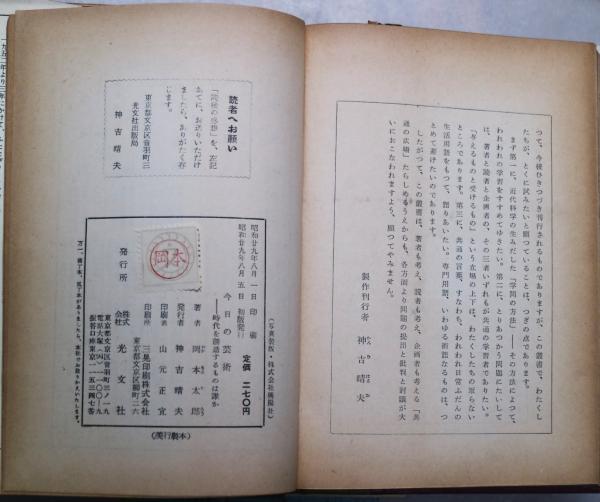 つて、今後ひきつづき刊行されるものでありますが、この叢書で、わたくし
たちが、とくに試みたいと願つていることは、つぎの点であります。
まず第一に、近代科学の生みだした「学問の方法」——その方法によつて、
われわれの学習をすすめてゆきたい。第二に、とりあつかう問題にたいして
は、著者と読者と企画者の、その三者いずれもが共通の学習者でありたい。
「与えるものと受けるもの」という立場の上下は、わたくしたちの取らない
ところであります。第三に、共通の言葉、すなわち、われわれ日常ふだんの
生活用語をもつて、語りあいたい。専門用語、いわゆる術語なるものは、つ
とめて避けたいのであります。
したがつて、この叢書は、著者も考え、読者も考え、企画者も考える「共
通の広場」たらしめるうえからも、各方面より問題の提出と批判と討議が大
いにおこなわれますよう、願つてやみません。
製作刊行者 神吉晴夫
読者へお願い
「読後の感想」を、左記
あてに、お送りいただけ
ましたら、ありがたく存
じます。
東京都文京区音羽町三
光文社出版局
神吉晴夫
(写真製版・株式会社興陽社)
今日の芸術
——時代を創造するものは誰か
定価 二七〇円
昭和廿九年八月一日 印刷
昭和廿九年八月五日 初版発行
岡本
著者 岡本太郎
発行者 神吉晴夫
印刷者 山元正宜
印刷所 三晃印刷株式会社
東京都文京区柳町二六
発行所
株式会社 光文社
東京都文京区音羽町三ノ一九
電話大塚(94)
振替口座東京一一五三四七番
万一、落丁本、乱丁本がありましたら、本社でお取りかえいたします。